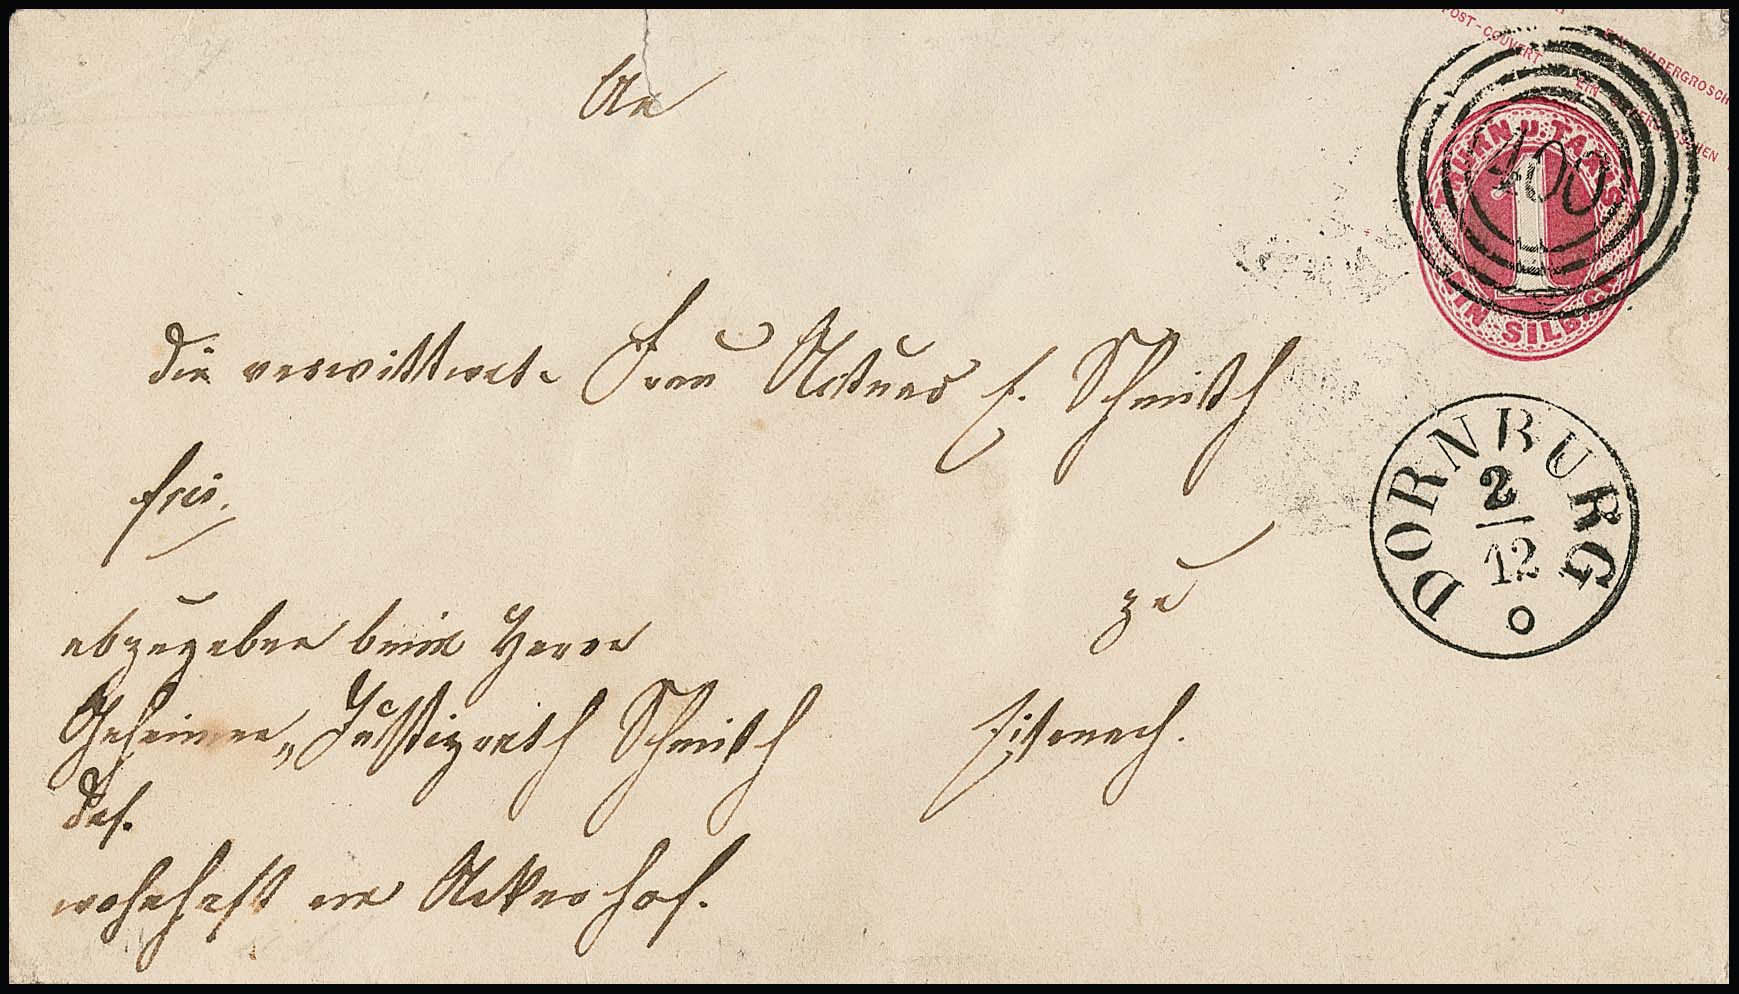 POST-COUVERT EIN SILBERGROSCHEN
EIN SILBERGROSCH
THURN u. TAXIS
400
1
EIN SILB. G.
An
die verwittwete Frau Actuar E. Schmidt
frei.
zu
abzugeben beim Herrn
Geheimen Justizrath Schmidt
Eisenach.
das.
wohnhaft im Ackerhof.
DORNBURG
2
12